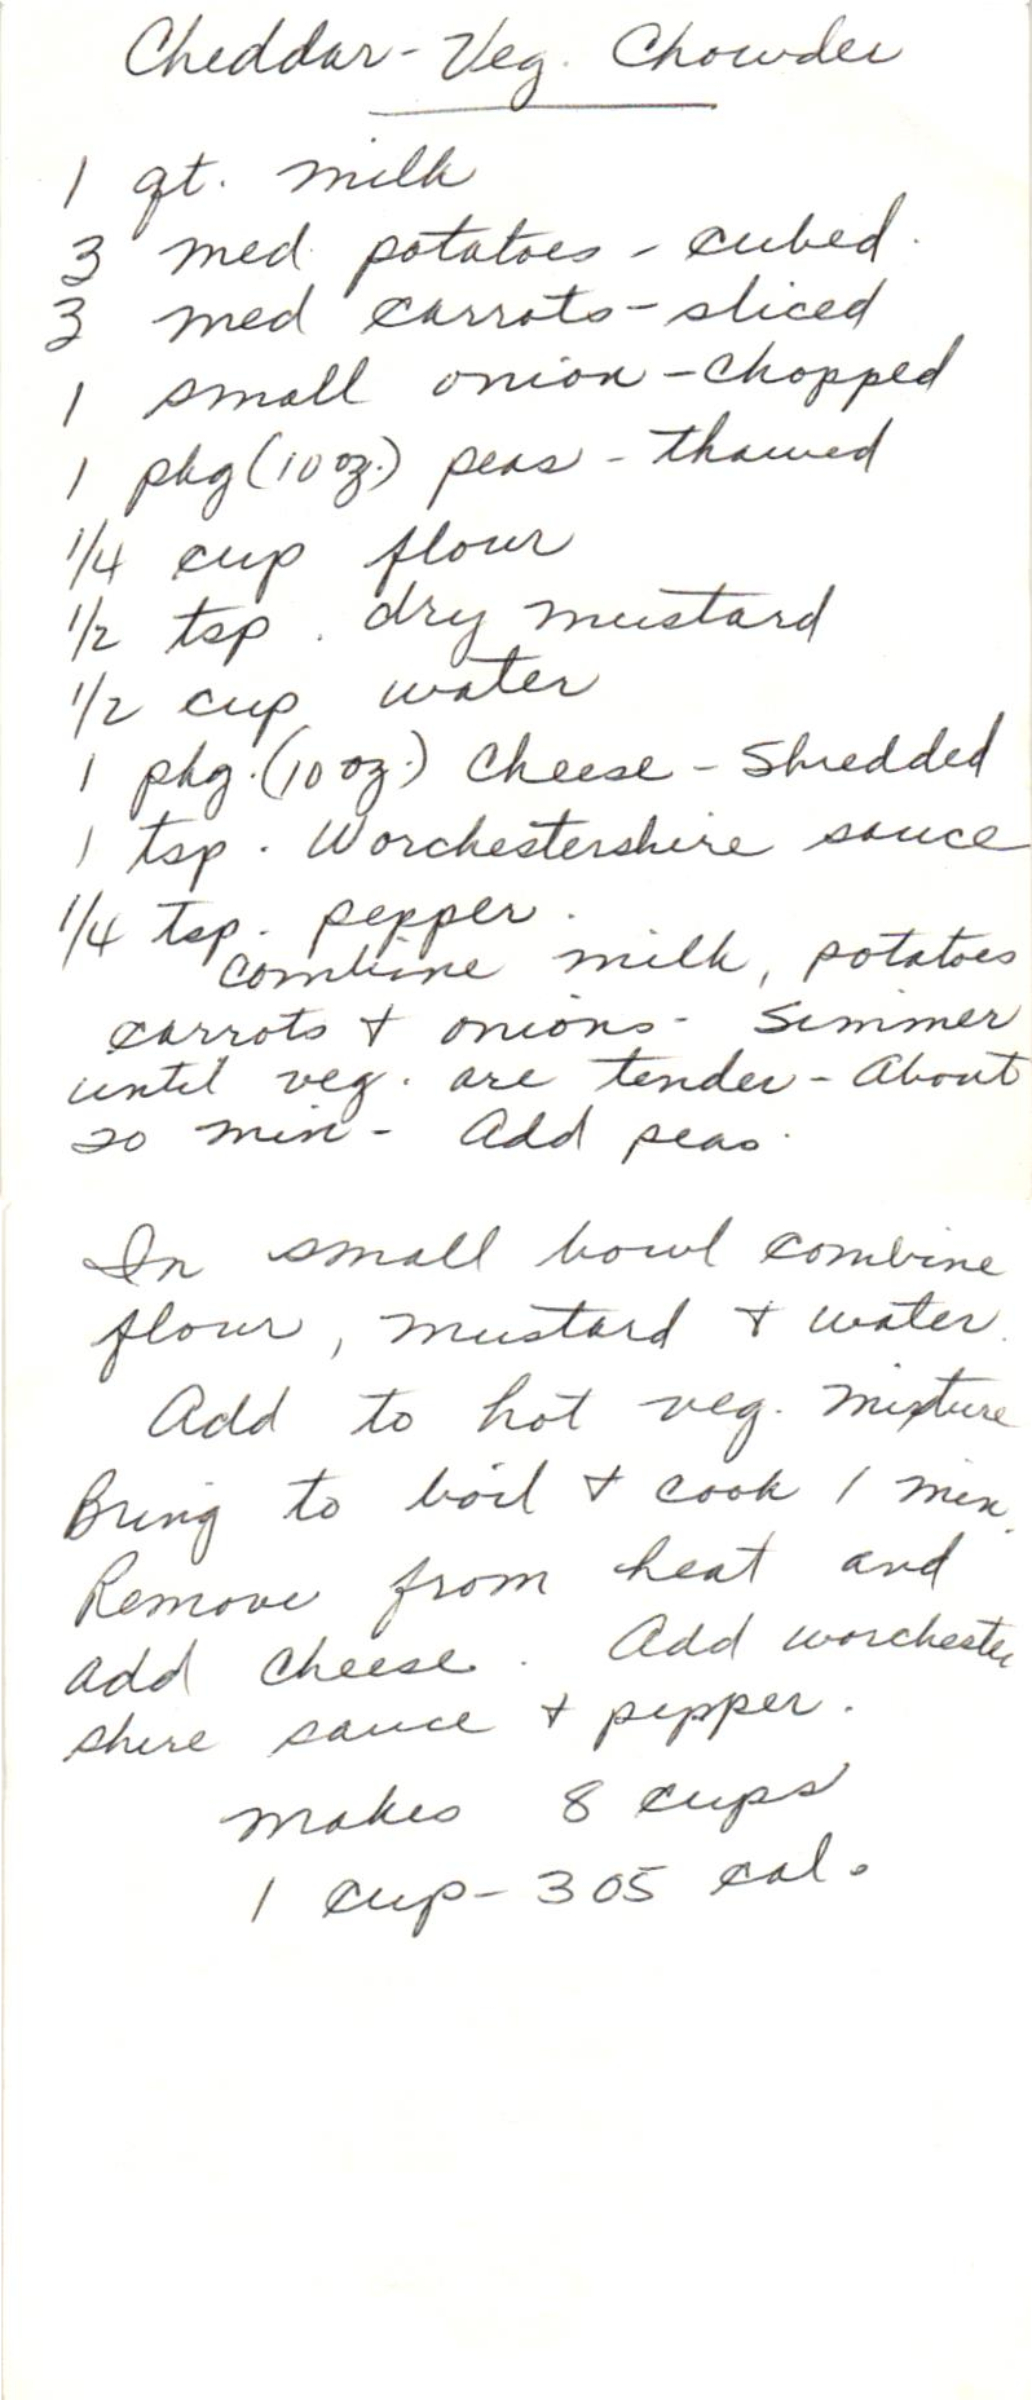 Cheddar-Veg. Chowder
1 qt. milk
3 med. potatoes - cubed.
3 med carrots - sliced
1 small onion - chopped
1 pkg (10 oz.) peas - thawed
1/4 cup flour
1/2 tsp. dry mustard
1/2 cup water
1 pkg. (10 oz.) cheese - Shredded
1 tsp. Worchestershire sauce
1/4 tsp. pepper.
combine milk, potatoes
carrots + onions - Simmer
until veg. are tender - About
20 min - Add peas.
In small bowl combine
flour, mustard + water.
Add to hot veg. mixture
Bring to boil + cook 1 min.
Remove from heat and
add cheese. Add worchester
shire sauce + pepper.
makes 8 cups
1 cup - 305 cal.